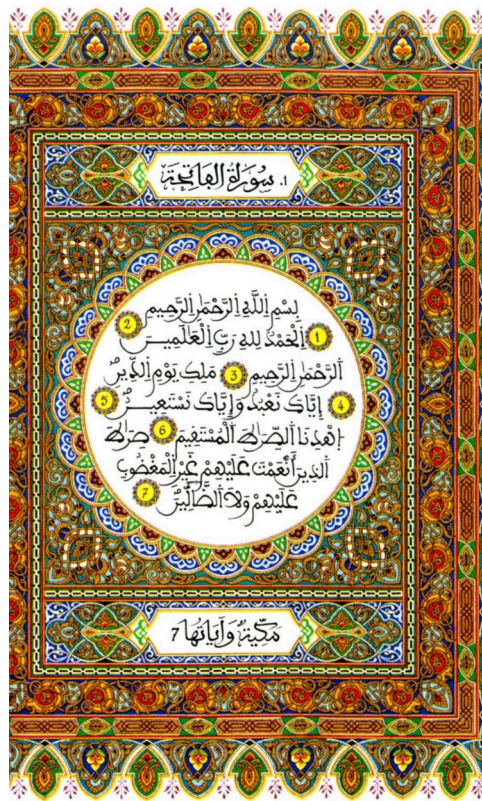 1. سُورَةُ الْفَاتِحَةِ
بِسْمِ اللَّهِ الرَّحْمَٰنِ الرَّحِيمِ
1 الْحَمْدُ لِلهِ رَبِّ الْعَالَمِينَ 2
الرَّحْمَٰنِ الرَّحِيمِ 3 مَلِكِ يَوْمِ الدِّينِ
4 إِيَّاكَ نَعْبُدُ وَإِيَّاكَ نَسْتَعِينُ 5
اهْدِنَا الصِّرَاطَ الْمُسْتَقِيمَ 6 صِرَاطَ
الَّذِينَ أَنْعَمْتَ عَلَيْهِمْ غَيْرِ الْمَغْضُوبِ
عَلَيْهِمْ وَلَا الضَّالِّينَ 7
مَكِّيَّةٌ وَآيَاتُهَا 7